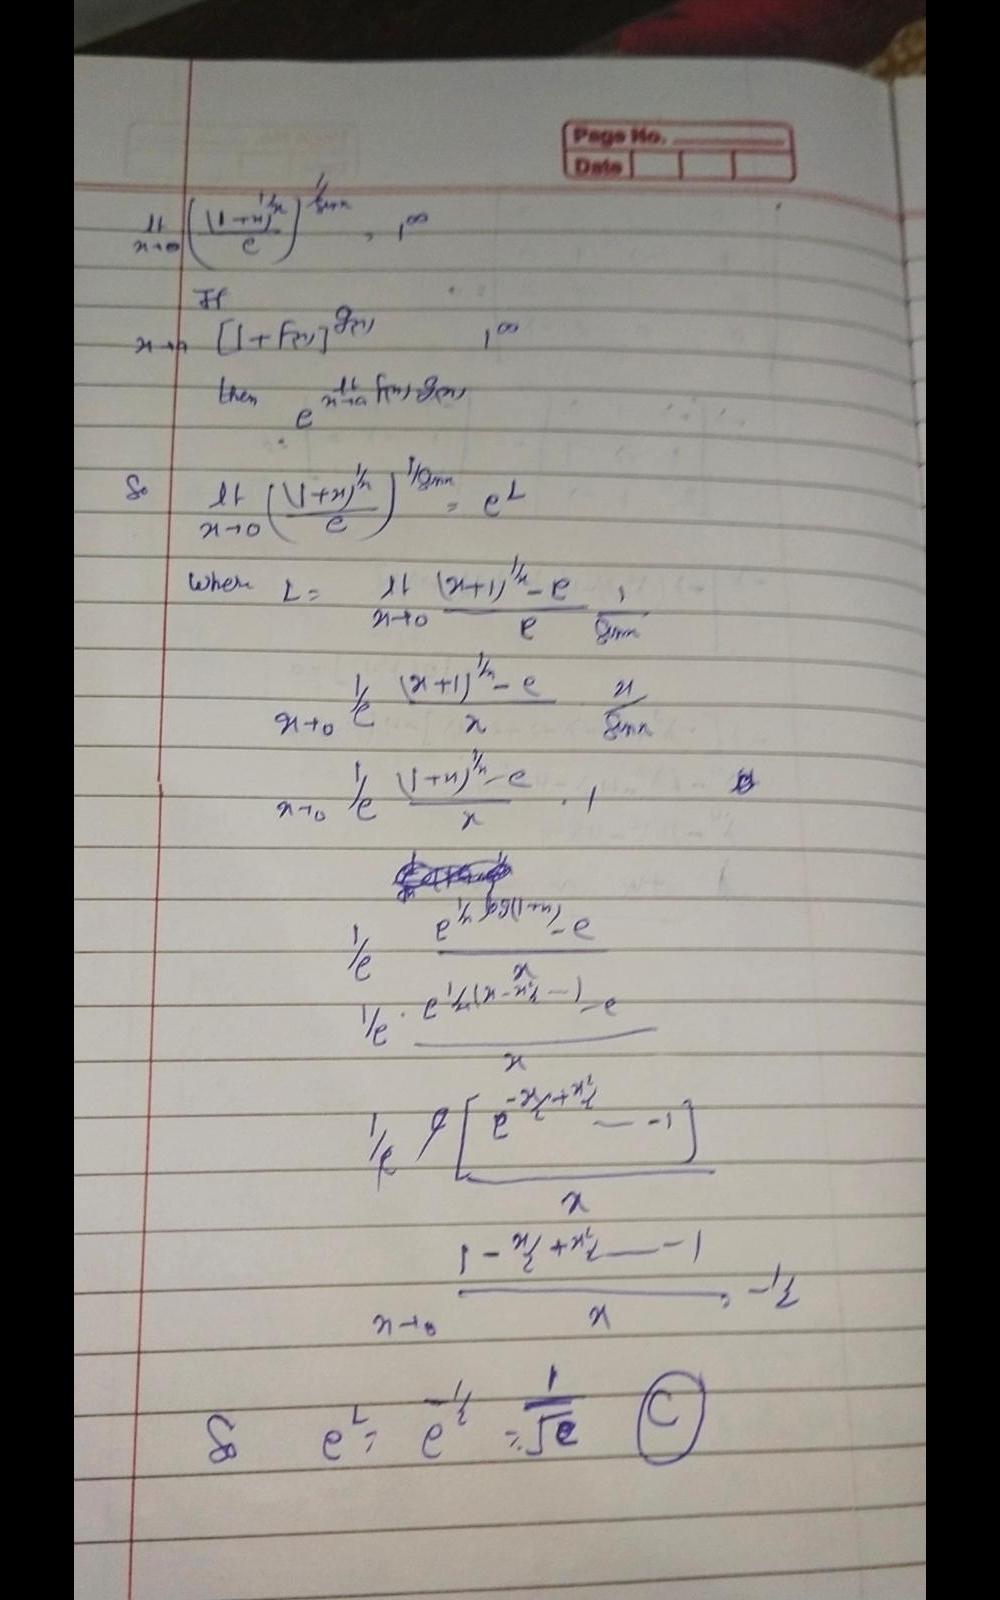 Page No.
Date
lt x→0 ((1+x)^1/x / e)^1/sinx , 1^∞
If
x→a [1+f(x)]^g(x) 1^∞
then e^lt x→a f(x) g(x)
So lt x→0 ((1+x)^1/x / e)^1/sinx = e^L
where L = lt x→0 (1+x)^1/x - e / e 1/sinx
x→0 1/e (1+x)^1/x - e / x x/sinx
x→0 1/e (1+x)^1/x - e / x . 1
1/e e^1/x log(1+x) - e / x
1/e . e^1/x (x - x²/2 --) - e / x
1/e e [e^-x/2 + x²/ -- - 1] / x
x→0 1 - x/2 + x²/ -- - 1 / x = -1/2
So e^L = e^-1/2 = 1/√e C